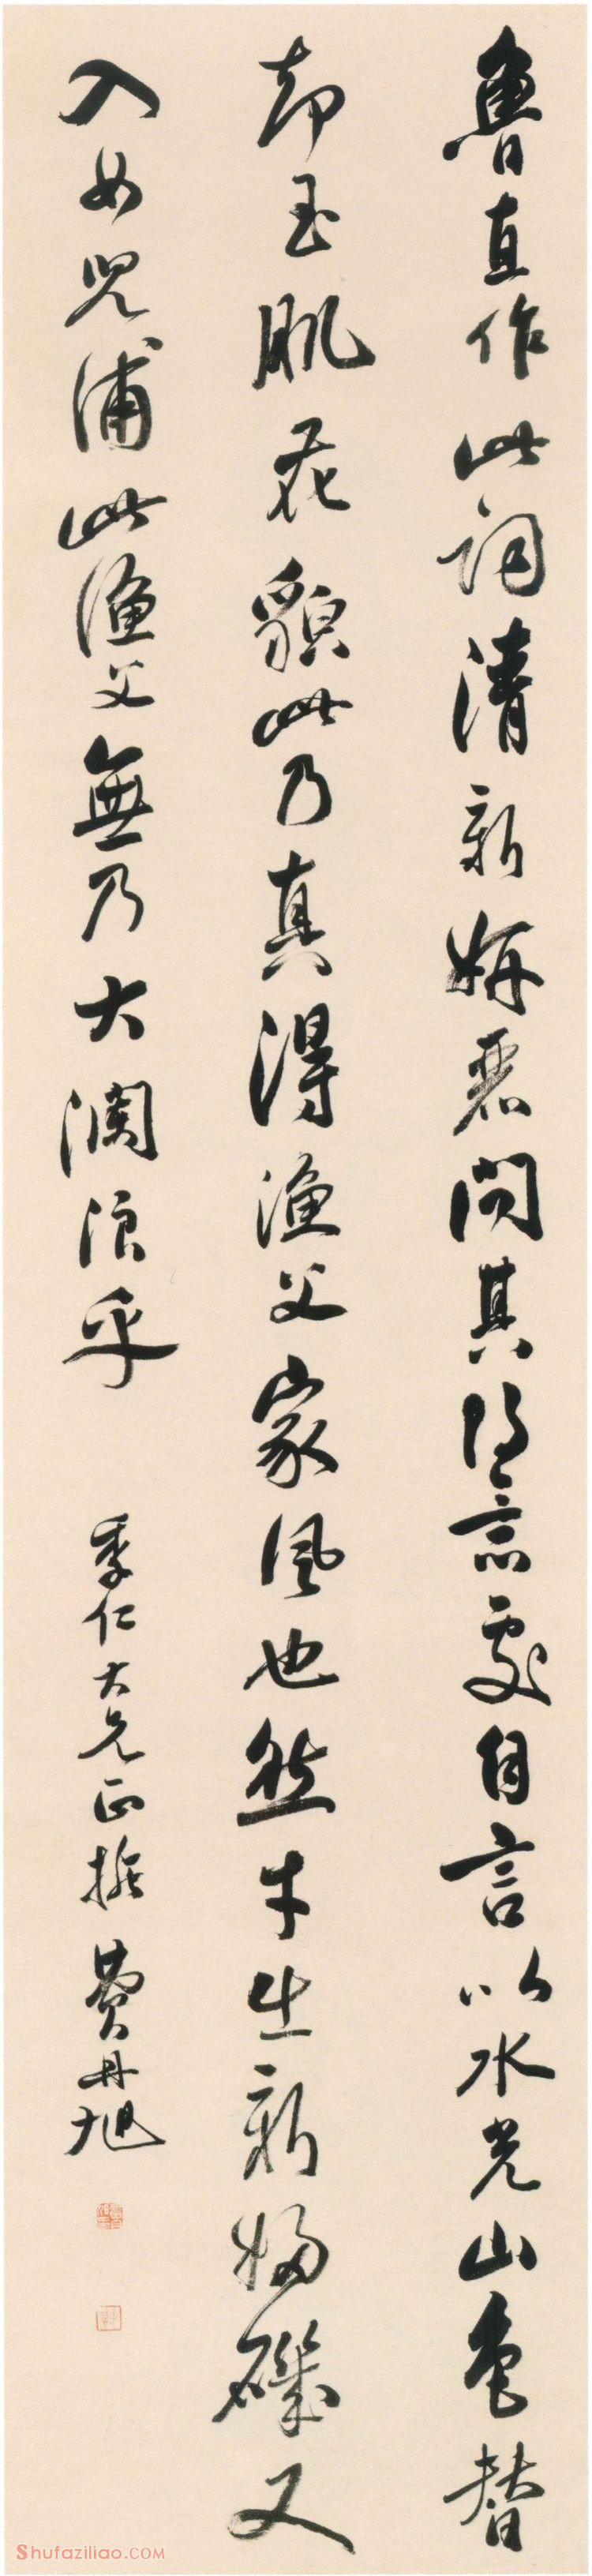 魯直作此詞清新婉麗問其得意處自言以水光山色替
却玉肌花貌此乃真得漁父家風也然才出新婦磯又
入女兒浦此漁父無乃大瀾浪乎
季仁大兄正摭 費丹旭
Shufaziliao.COM